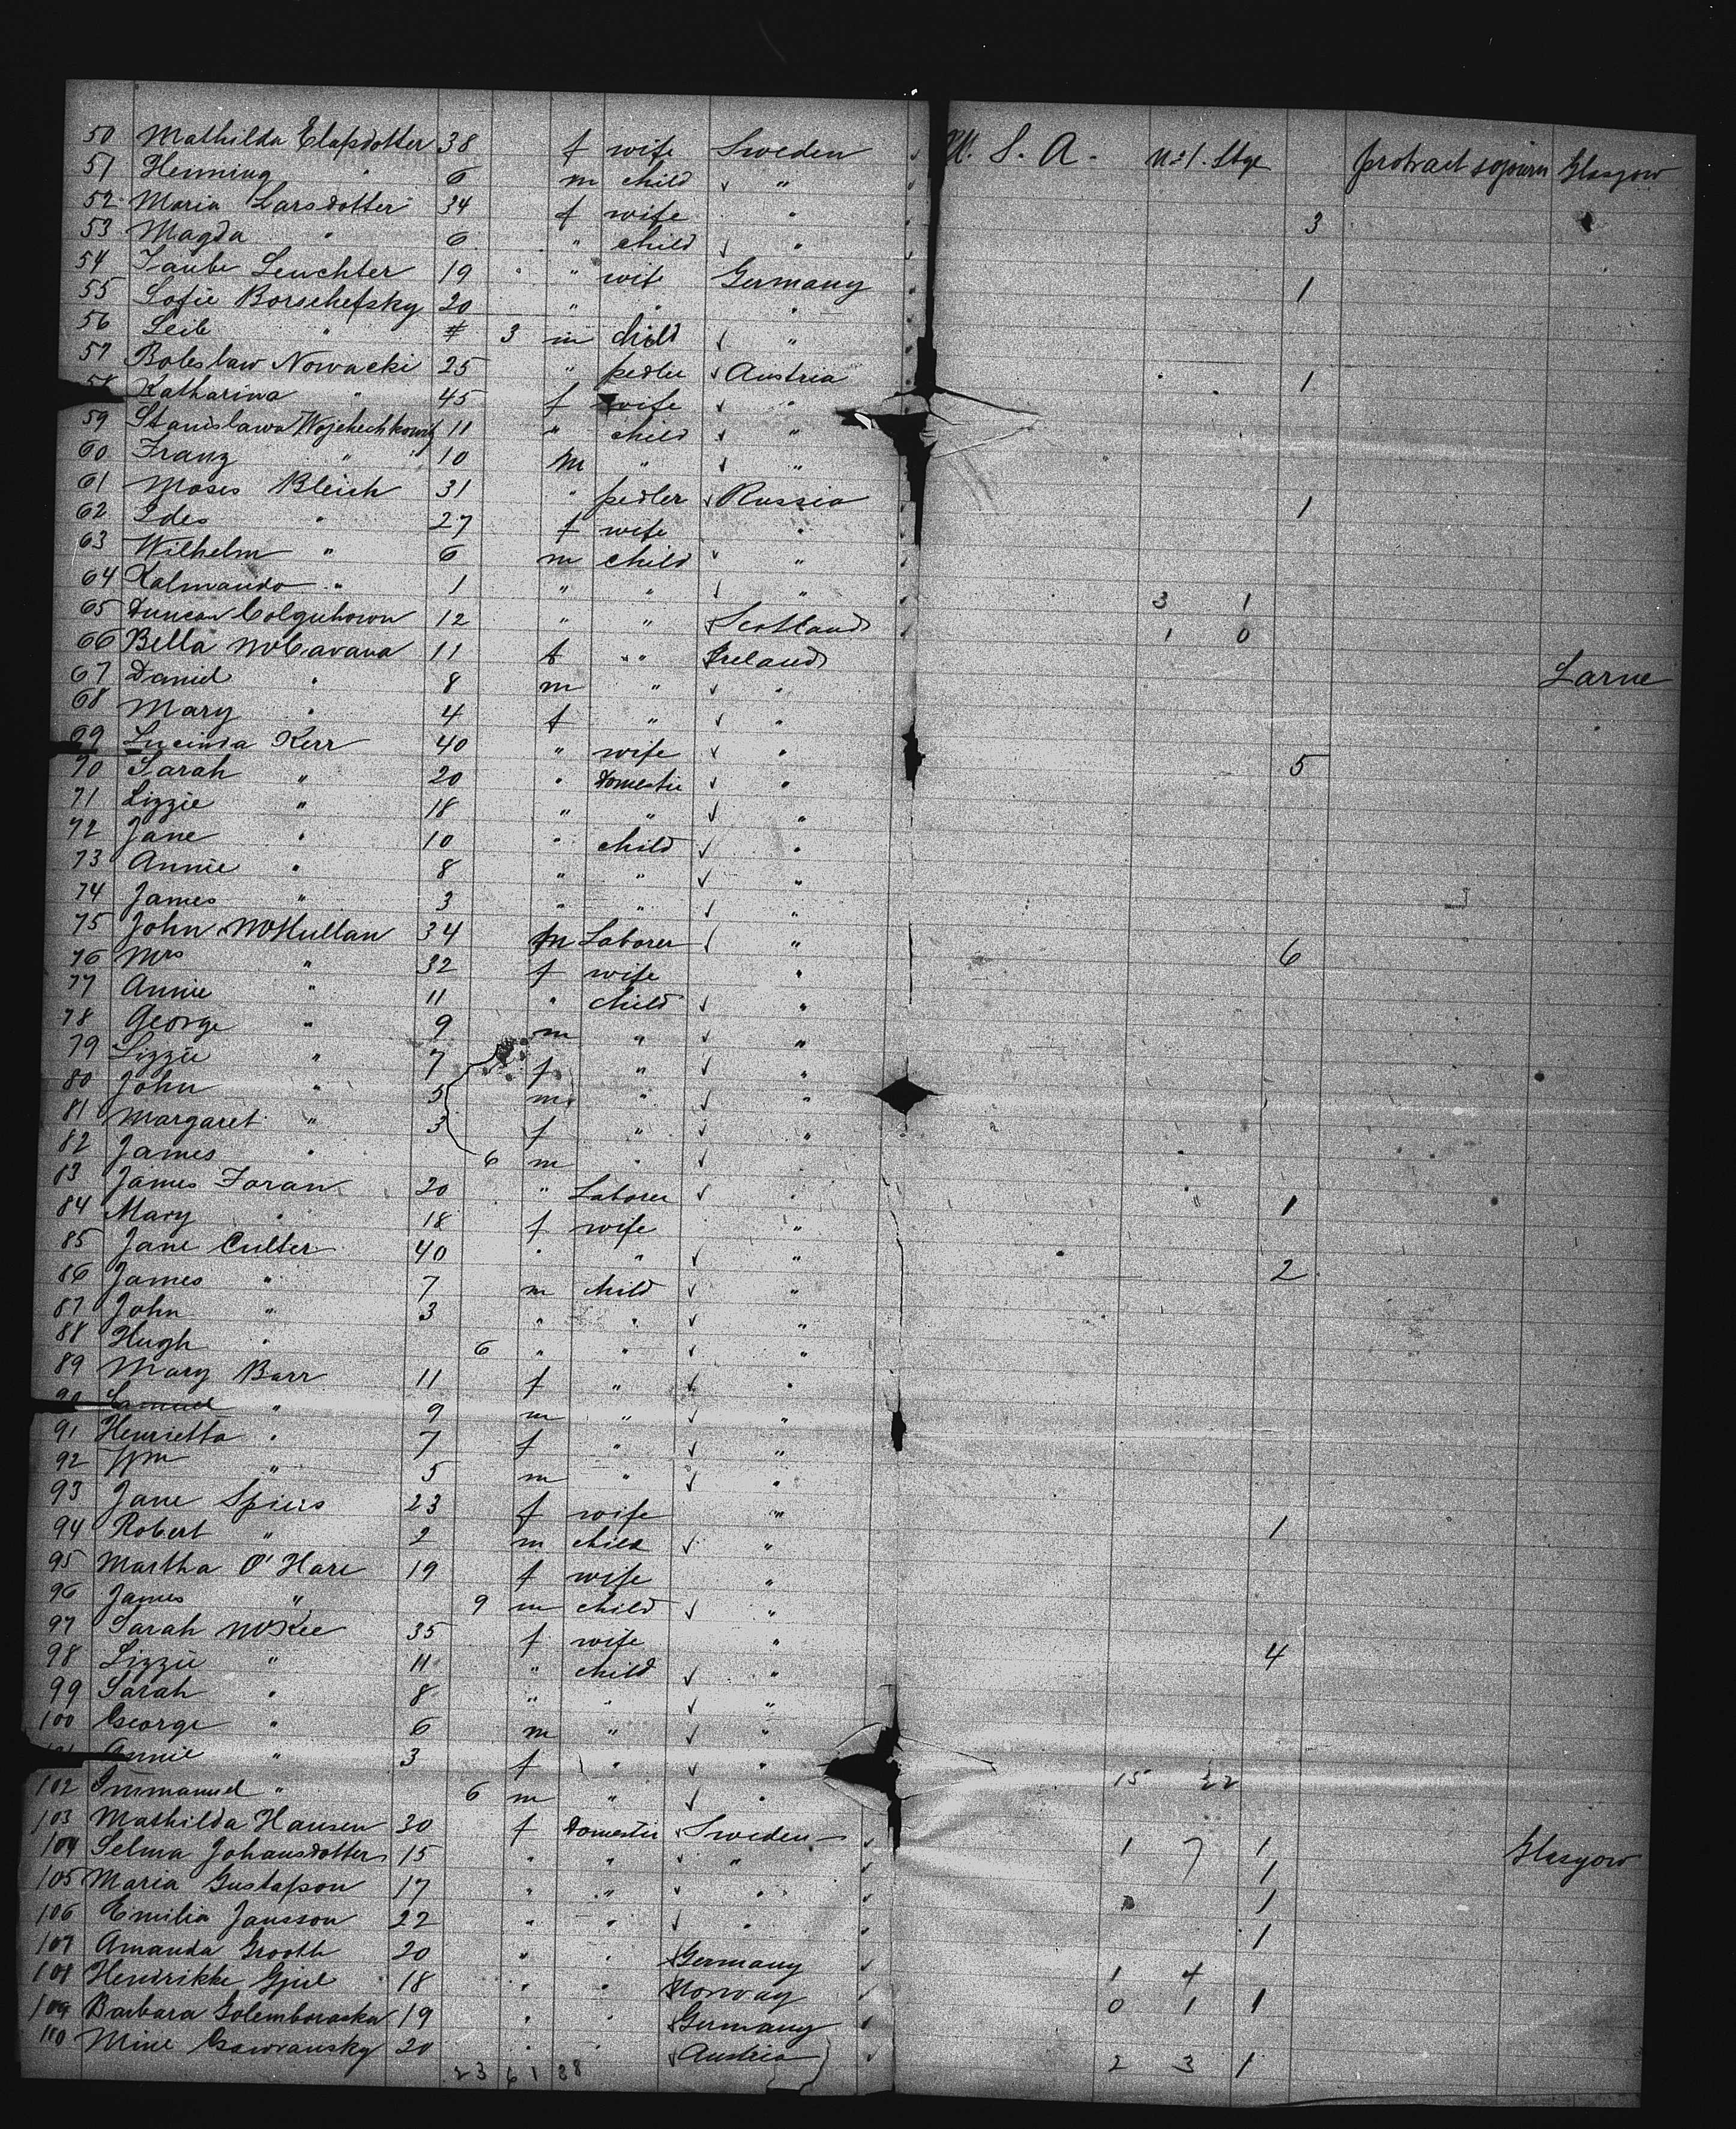 50 Mathilda Elafsdotter 38 f wife Sweden U. S. A. No 1. Stge protract sojourn Glasgow
51 Henning " 6 m child "
52 Maria Larsdotter 34 f wife " 3
53 Magda " 6 " child "
54 Taube Leuchter 19 " wife Germany 1
55 Sofie Borschefsky 20 " " "
56 Leib " 3 m child "
57 Boleslaw Nowacki 25 " pedler Austria 1
58 Katharina " 45 f wife "
59 Stanislawa 11 " child "
60 Franz " 10 m " "
61 Moses Bleich 31 " pedler Russia 1
62 Ides " 27 f wife "
63 Wilhelm " 6 m child "
64 Kalmando " 1 " " " 3 1
65 Duncan Colquhown 12 " " Scotland 1 0
66 Bella McCavana 11 f " Ireland Larne
67 Daniel " 8 m " "
68 Mary " 4 f " "
69 Lucinda Kerr 40 " wife " 5
70 Sarah " 20 " Domestic "
71 Lizzie " 18 " " "
72 Jane " 10 " child "
73 Annie " 8 " " "
74 James " 3 " " "
75 John McMullan 34 m Laborer " 6
76 Mrs " 32 f wife "
77 Annie " 11 " child "
78 George " 9 m " "
79 Lizzie " 7 f " "
80 John " 5 m " "
81 Margaret " 3 f " "
82 James " 6 m " "
83 James Foran 20 " Laborer " 1
84 Mary " 18 f wife "
85 Jane Culter 40 " " " 2
86 James " 7 m child "
87 John " 3 " " "
88 Hugh " 6 " " "
89 Mary Barr 11 f " "
90 Samuel " 9 m " "
91 Henrietta " 7 f " "
92 Wm " 5 m " "
93 Jane Spiers 23 f wife " 1
94 Robert " 2 m child "
95 Martha O'Hare 19 f wife "
96 James " 9 m child "
97 Sarah McKee 35 f wife " 4
98 Lizzie " 11 " child "
99 Sarah " 8 " " "
100 George " 6 m " "
101 Annie " 3 f " "
102 Immanuel " 6 m " " 15 22
103 Mathilda Hansen 30 f Domestic Sweden 1 7 1 Glasgow
104 Selma Johansdotter 15 " " " 1
105 Maria Gustafson 17 " " " 1
106 Emilia Jansson 22 " " " 1
107 Amanda Grooth 20 " " Germany 1 4
108 Hendrikke 18 " " Norway 0 1 1
109 Barbara 19 " " Germany
110 Mine 20 " " Austria 2 3 1
23 6 1 38